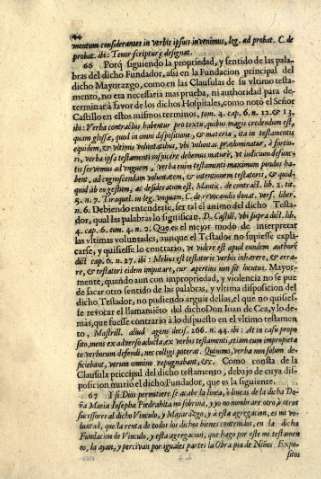 mentum considerantes in verbis ipsius invenimus, leg. ad probat. C. de
probat. ibi: Tenor scripturæ designat.
66 Porq̃ siguiendo la propriedad, y sentido de las pala-
bras del dicho Fundador, assi en la Fundacion principal del
dicho Mayorazgo, como en las Clausulas de su vltimo testa-
mento, no era necessaria mas prueba, ni authoridad para de-
terminar à favor de los dichos Hospitales, como notò el Señor
Castillo en estos mismos terminos, tom. 4. cap. 6. n. 12. & 13.
ibi: Verba contractus habentur pro textu, quibus magis credendum est,
quàm glossæ, quod in omni dispositione, & materia, ita in testamentis
equidem, & vltimis voluntatibus, vbi voluntas prædominatur, à fortio-
ri, verba ipsa testamenti inspicere debemus mature, vt iudicum defunc-
tis servemus ad vnguem, verba enim testamenti maximum pondus ha-
bent, ad cognoscendam voluntatem, & intentionem testatoris, & quod-
quid ab eo gestum, ac desideratum est, Mantic. de contract. lib. 2. tit.
5. n. 7. Tiraquel. in leg. vnquam, C. de revocandis donat. vers. liber.
n. 6. Debiendo entenderse, ser tal el animo del dicho Testa-
dor, qual las palabras lo significan. D. Castill. vbi supra dict. lib.
4. cap. 6. tom. 4. n. 2. Que es el mejor modo de interpretar
las vltimas voluntades, aunque el Testador no supiesse expla-
carse, y quisiesse lo contrario, vt vulere est apud eundem authorẽ
dict cap. 6. n. 27. ibi: Melius est testatoris verbis inhærere, & erra-
re, & testatori eidem imputare, cur apertius non sit locutus. Mayor-
mente, quando aun con impropriedad, y violencia no se puede
sacar otro sentido de las palabras, y vltima disposicion del
dicho Testador, no pudiendo arguir dellas, el que no quisies-
se revocar el llamamiẽto del dicho Don Juan de Cea, y lo de-
mas, que fuesse contrario à lo dispuesto en el vltimo testamen
to, Mastrill. aliud agens decis. 266. n. 44. ibi: At in casu propo
sito, meni ex adverso adducta, ex verbis testamenti, etiam cum impropieta
te verborum defendi, nec colligi poterat. Quinimo, verba non solum de-
ficiebant, verum omnino repugnabant, &c. Como consta de la
Clausula principal del dicho testamento, debajo de cuya dis-
posicion muriò el dicho Fundador, que es la siguiente.
67 Y si Dios permitiere se acabe la linea, ò lineas de la dicha Do-
ña Maria Josepha Piedrabita mi sobrina, y yo no nombrare otro, ò otros
successores al dicho Vinculo, y Mayorazgo, y à esta agregacion, es mi vo-
luntad, que la renta de todos los dichos bienes contenidos, en la dicha
Fundacion de Vinculo, y esta agregacion, que hago por este mi testamen
to, la ayan, y perciban por iguales partes la Obra pia de Niños Expo-
sitos